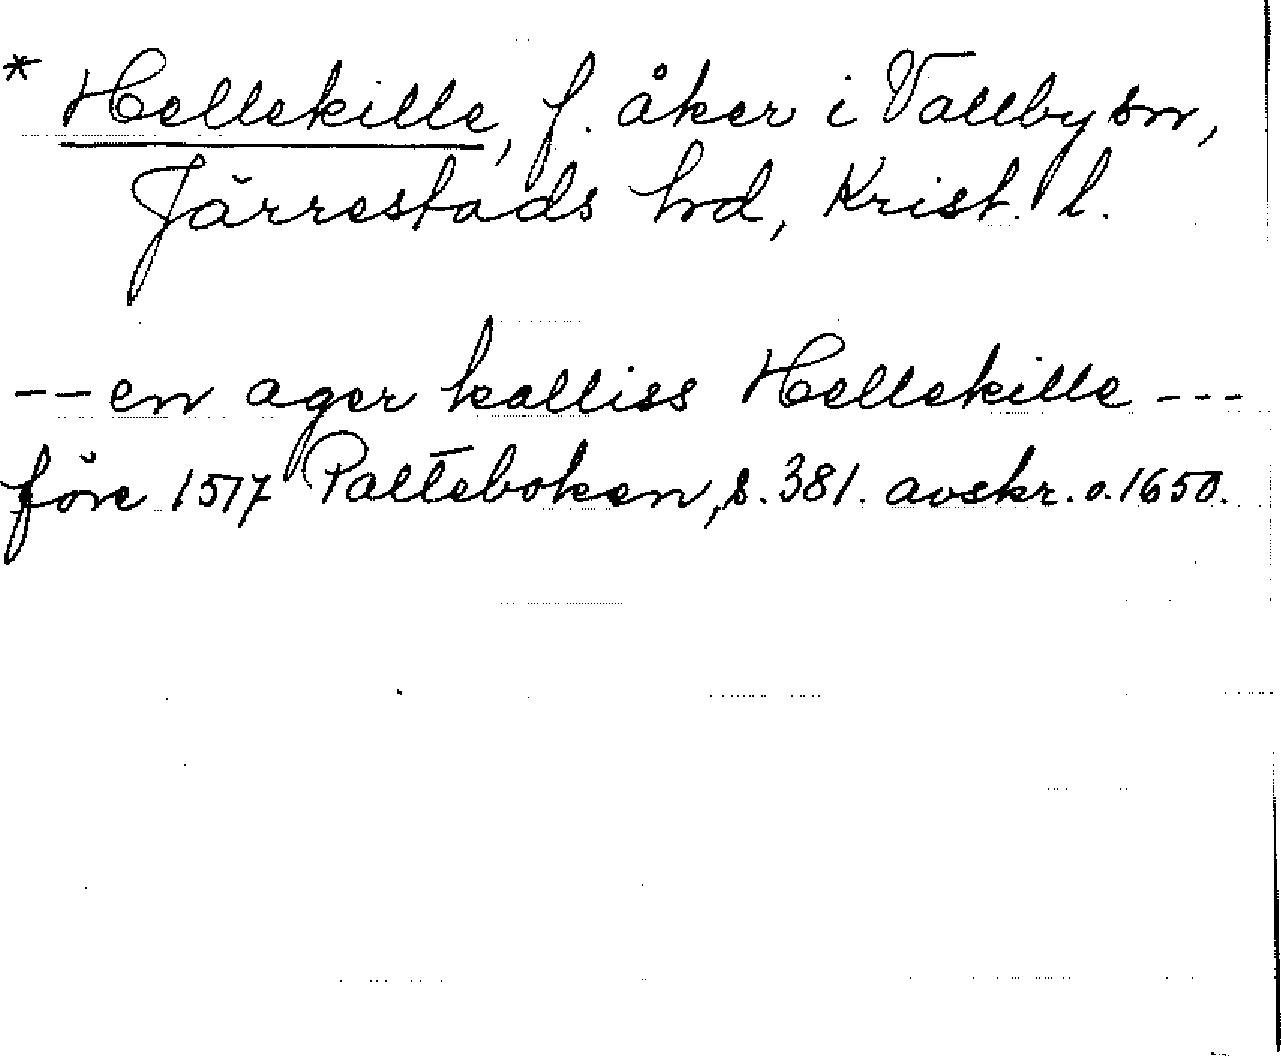 * Hellekille, f. åker i Vallby sn,
Järrestads hd, Krist. l.
-- en ager kalliss Hellekille ---
före 1517 Palteboken, s. 381. avskr. o. 1650.